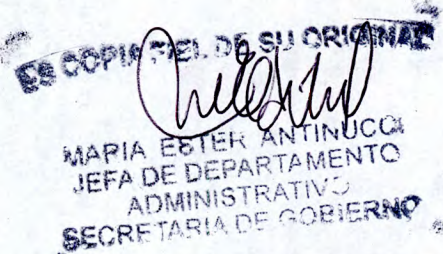 ES COPIA FIEL DE SU ORIGINAL
MARIA ESTER ANTINUCCI
JEFA DE DEPARTAMENTO
ADMINISTRATIVO
SECRETARIA DE GOBIERNO